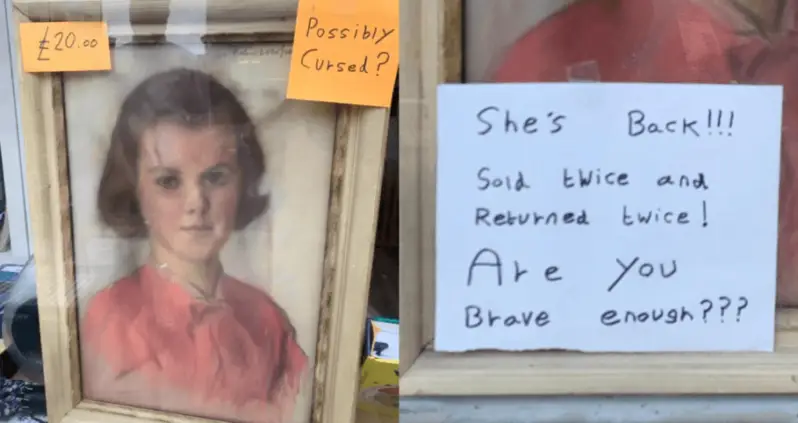 £20.00
Possibly
Cursed?
She's Back!!!
Sold twice and
Returned twice!
Are you
Brave enough???